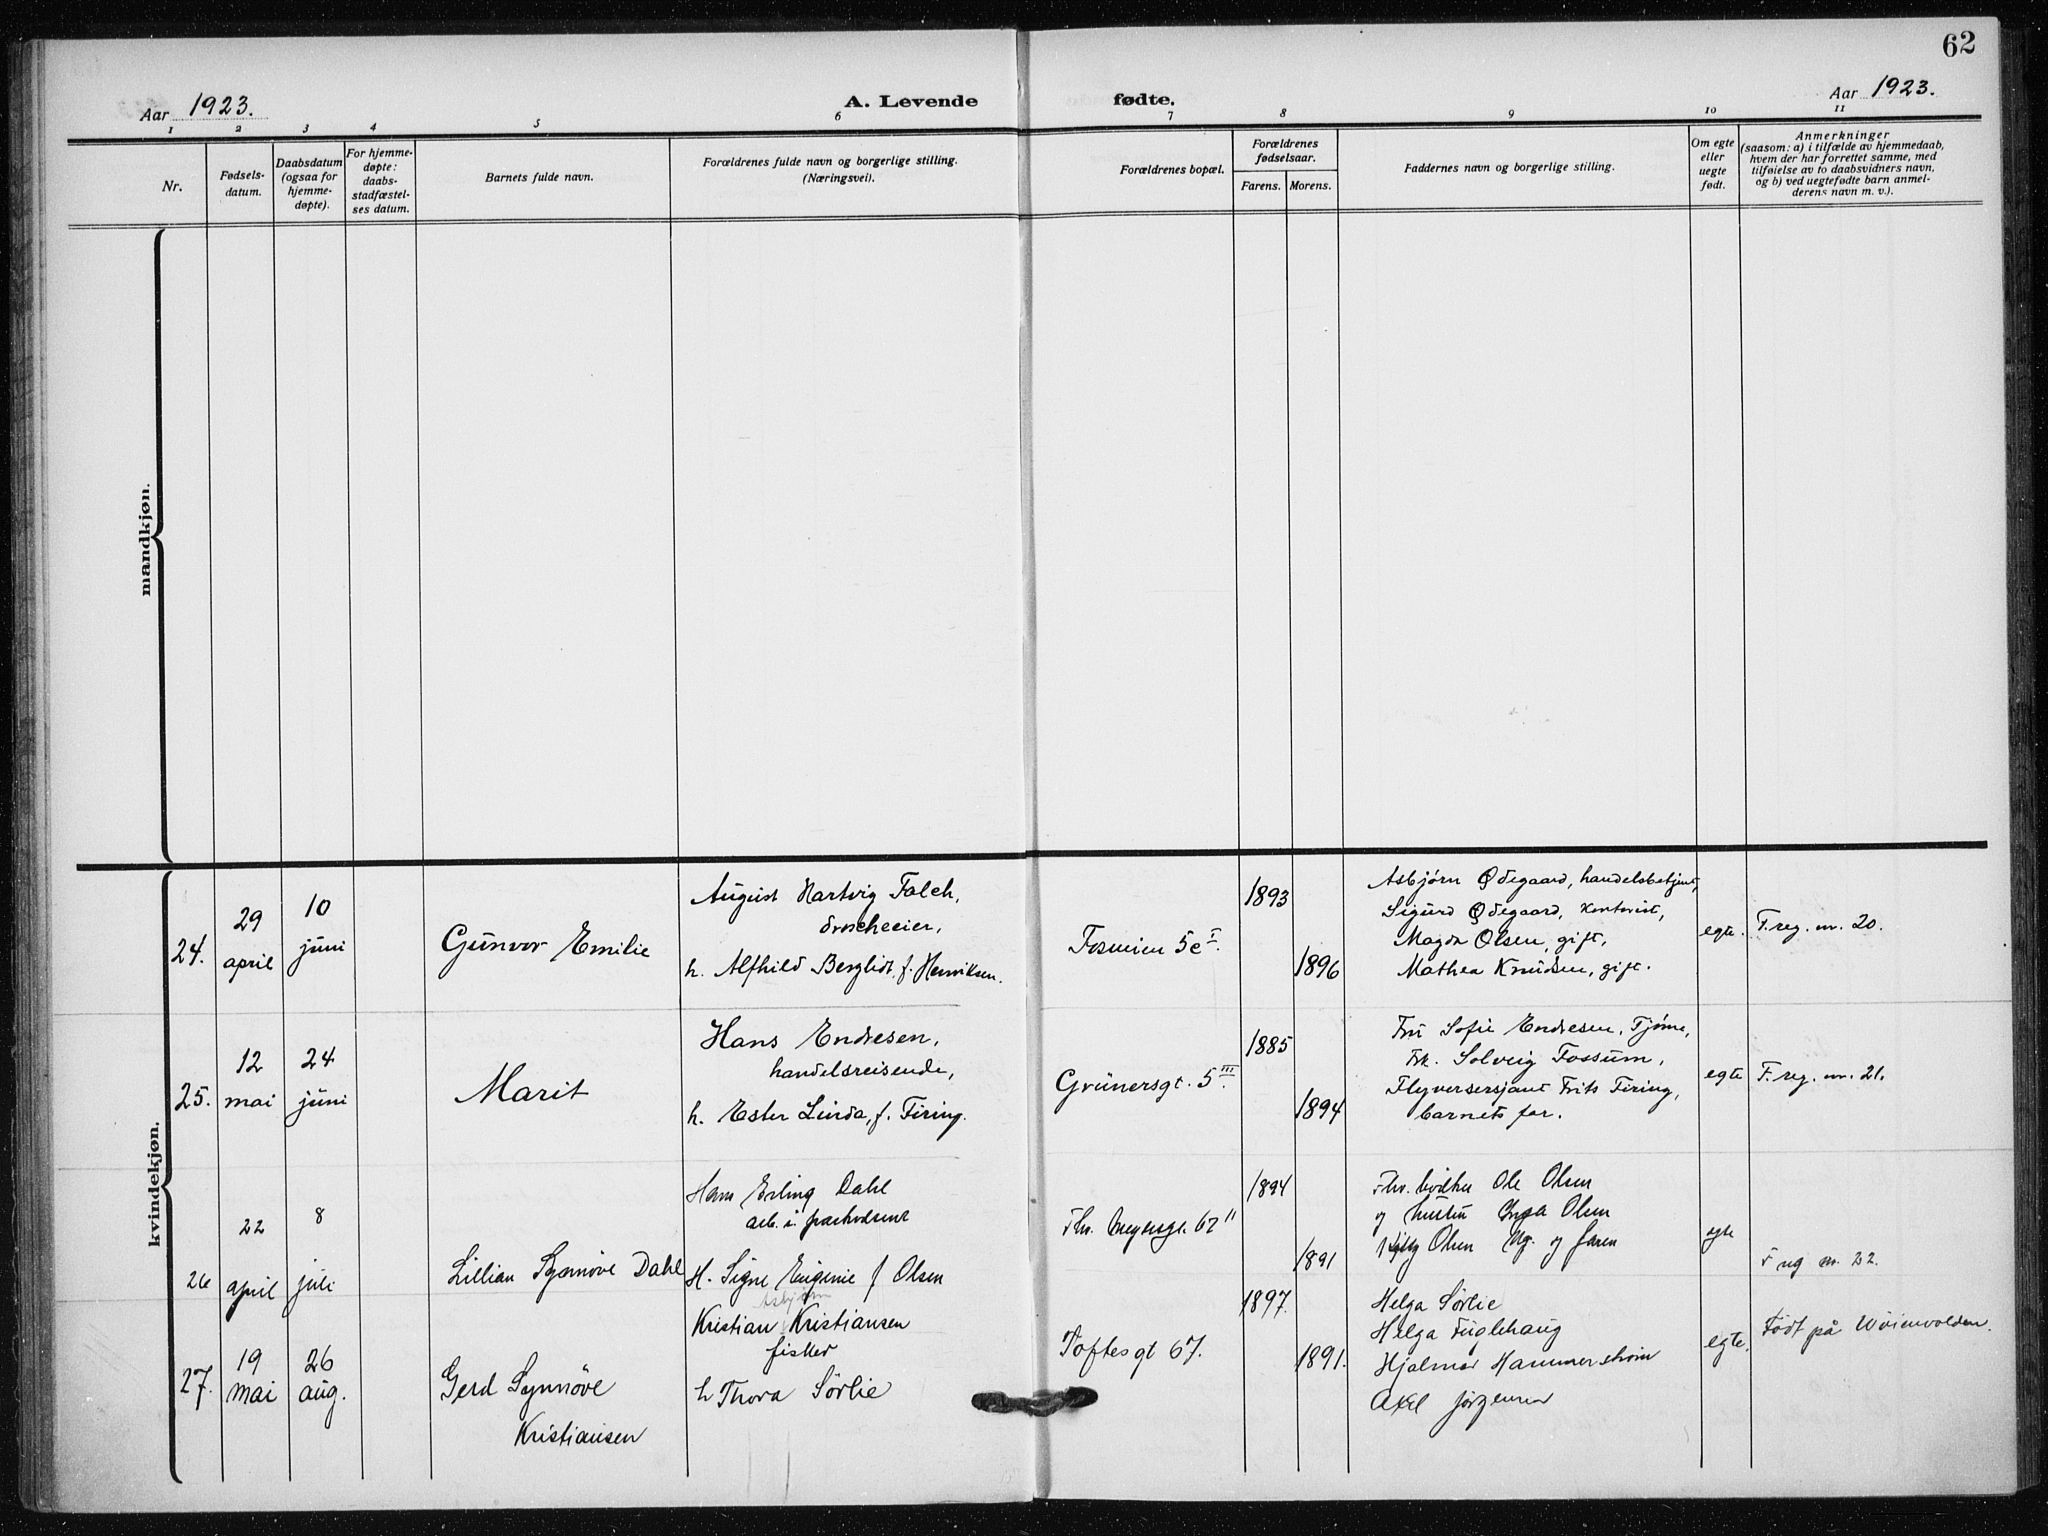 62
Aar 1923.
A. Levende fødte.
Aar 1923.
1 2 3 4 5 6 7 8 9 10 11
Nr.
Fødsels-
datum.
Daabsdatum
(ogsaa for
hjemme-
døpte).
For hjemme-
døpte:
daabs-
stadfæstel-
ses datum.
Barnets fulde navn.
Forældrenes fulde navn og borgerlige stilling.
(Næringsvei).
Forældrenes bopæl.
Forældrenes
fødselsaar.
Farens. Morens.
Faddernes navn og borgerlige stilling.
Om egte
eller
uegte
født.
Anmerkninger
(saasom: a) i tilfælde av hjemmedaab,
hvem der har forrettet samme, med
tilføielse av to daabsvidners navn,
og b) ved uegtefødte barn anmel-
derens navn m. v.).
mandkjøn.
kvindekjøn.
24.
29
april
10
juni
Gunvor Emilie
August Hartvig Falch,
droscheeier,
h. Alfhild Bergliot, f. Henriksen.
Fosveien 5c I.
1893
1896
Asbjørn Ødegaard, handelsbetjent,
Sigurd Ødegaard, kontorist,
Magda Olsen, gift,
Mathea Knudsen, gift.
egte.
F.reg. nr. 20.
25.
12
mai
24
juni
Marit
Hans Endresen,
handelsreisende,
h. Ester Linda, f. Firing.
Grünersgt. 5 III.
1885
1894
Fru Sofie Endresen, Tjøme,
Frk. Solveig Fossum,
Flyversersjant Frits Firing,
barnets far.
egte
F.reg. nr. 21.
26
22
april
8
juli
Lillian Synnøve Dahl
Hans Erling Dahl
arb. i
H. Signe Eugenie f Olsen
Thv. Meyersgt. 62 II
1894
1891
Ole Olsen
og hustru Inga Olsen
Olsen Ug. og faren
egte
F reg nr. 22.
27.
19
mai
26
aug.
Gerd Synnöve
Kristiansen
Asbjørn
Kristian Kristiansen
fisker
h Thora Sørlie
Toftesgt 67.
1897.
1891.
Helga Sørlie
Helga Fuglehaug
Hjalmar Hammerstrøm
Axel Jørgensen
egte.
Født på Wøienvolden.